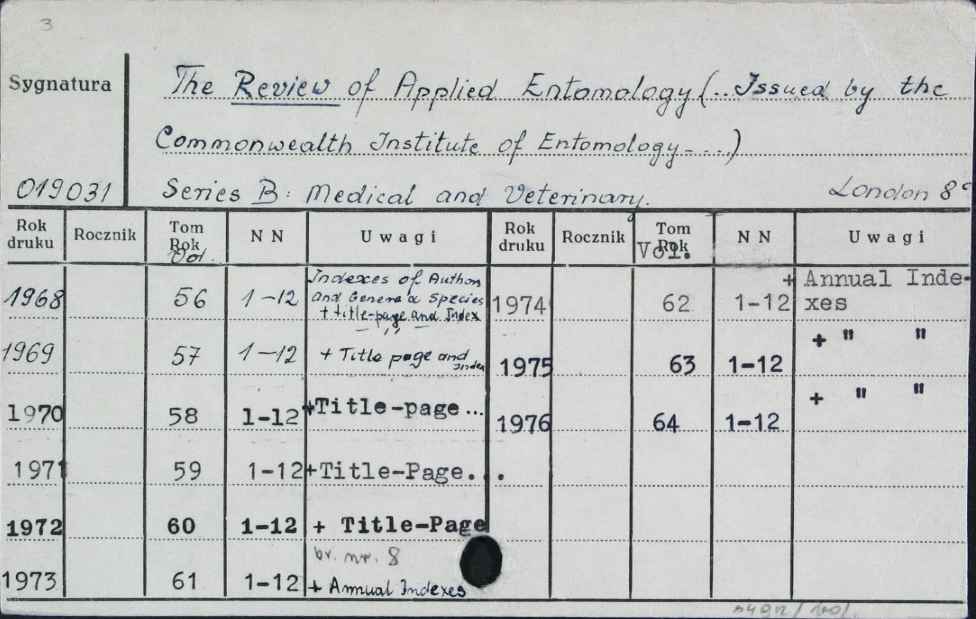 3
Sygnatura
The Review of Applied Entomology (..Issued by the
Commonwealth Institute of Entomology-...)
019031 Series B: Medical and Veterinary. London 8°
Rok druku Rocznik Tom Rok Vol. N N Uwagi Rok druku Rocznik Tom Rok Vol. N N Uwagi
1968 56 1-12 Indexes of Author and Genera & Species + title-page and Index
1974 62 1-12 + Annual Indexes
1969 57 1-12 + Title page and Index
1975 63 1-12 + " "
1970 58 1-12 +Title-page...
1976 64 1-12 + " "
1971 59 1-12 +Title-Page...
1972 60 1-12 + Title-Page
br. nr. 8
1973 61 1-12 + Annual Indexes